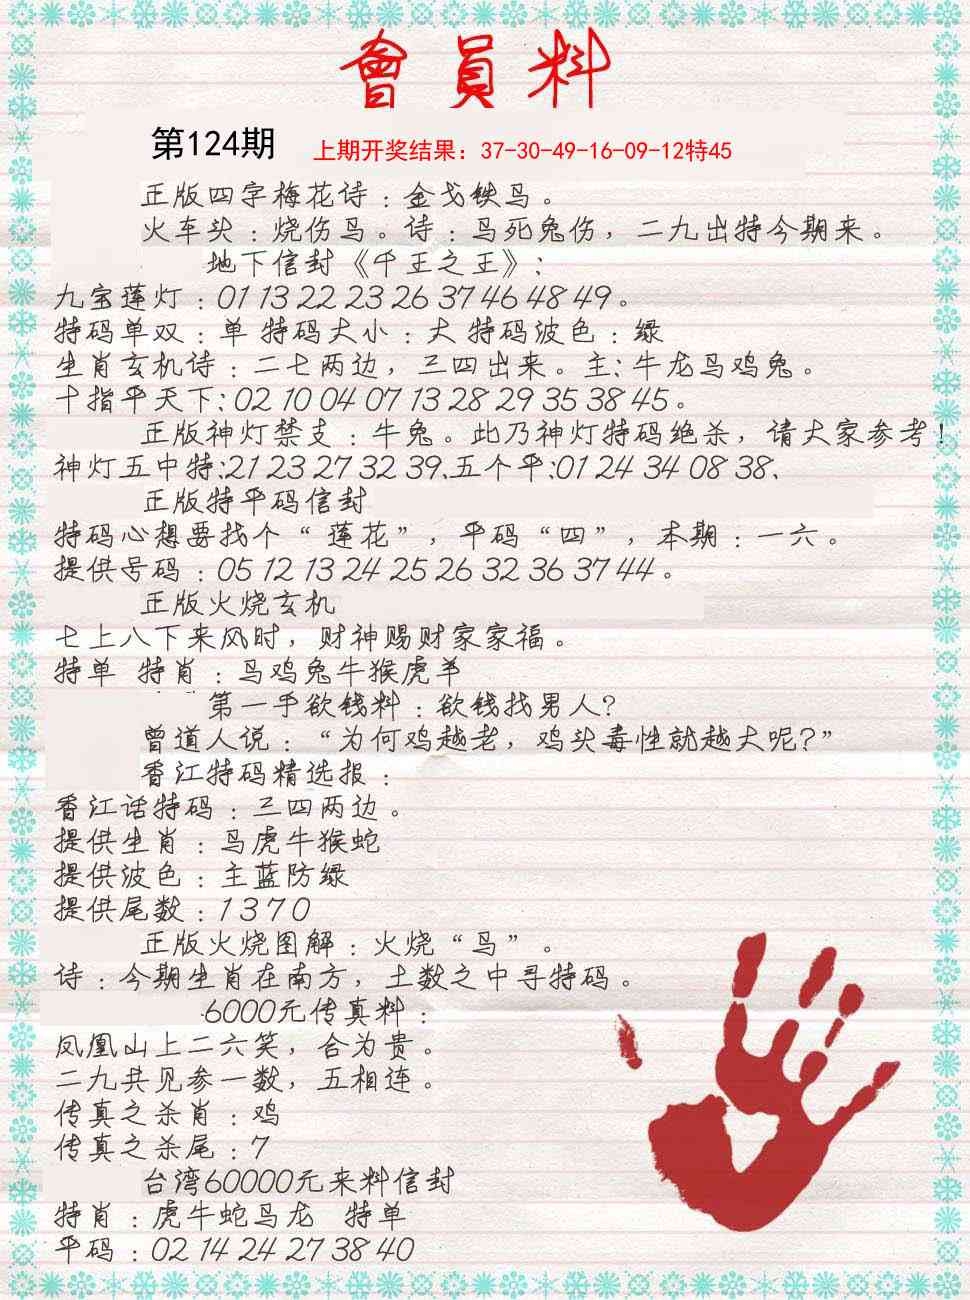 會員料
第124期 上期开奖结果：37-30-49-16-09-12特45
正版四字梅花诗：金戈铁鸟。
火车头：烧伤鸟。诗：鸟死兔伤，二九出特今期来。
地下信封《千王之王》：
九宝莲灯：01 13 22 23 26 37 46 48 49。
特码单双：单 特码大小：大 特码波色：绿
生肖玄机诗：二七两边，三四出来。主：牛龙鸟鸡兔。
十指平天下：02 10 04 07 13 28 29 35 38 45。
正版神灯禁支：牛兔。此乃神灯特码绝杀，请大家参考！
神灯五中特：21 23 27 32 39、五个平：01 24 34 08 38、
正版特平码信封
特码心想要找个“莲花”，平码“四”，本期：一六。
提供号码：05 12 13 24 25 26 32 36 37 44。
正版火烧玄机
七上八下来风时，财神赐财家家福。
特单 特肖：鸟鸡兔牛猴虎羊
第一手欲钱料：欲钱找男人？
曾道人说：“为何鸡越老，鸡头毒性就越大呢？”
香江特码精选报：
香江话特码：三四两边。
提供生肖：鸟虎牛猴蛇
提供波色：主蓝防绿
提供尾数：1 3 7 0
正版火烧图解：火烧“鸟”。
诗：今期生肖在南方，土数之中寻特码。
6000元传真料：
凤凰山上二六笑，合为贵。
二九共见参一数，五相连。
传真之杀肖：鸡
传真之杀尾：7
台湾60000元来料信封
特肖：虎牛蛇鸟龙 特单
平码：02 14 24 27 38 40